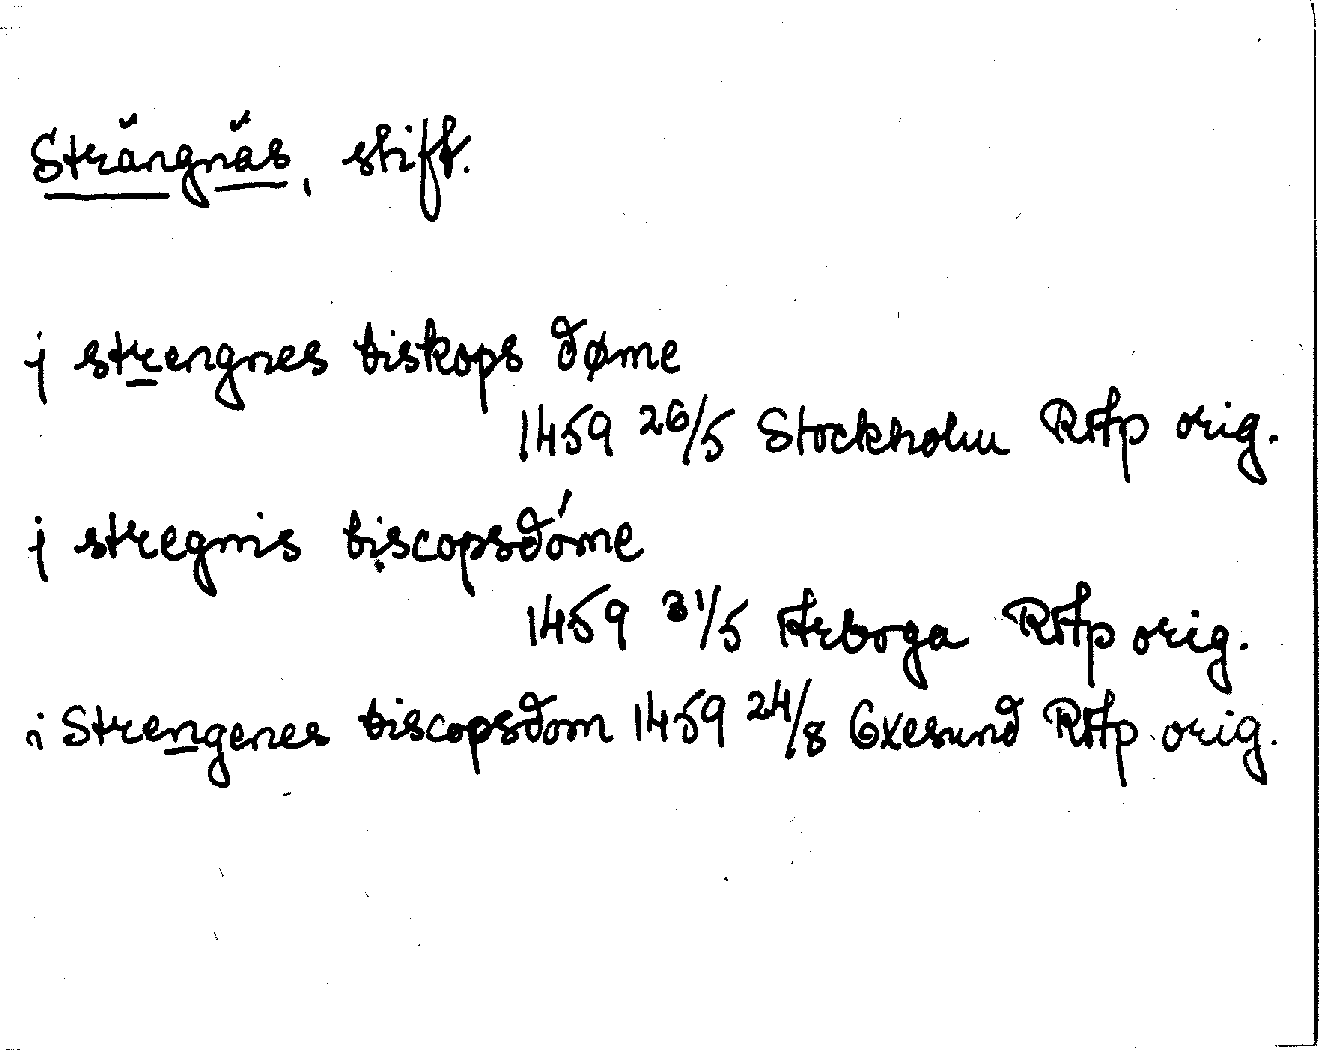 Strängnäs, stift.
j strengnes biskops døme
1459 26/5 Stockholm RAp orig.
j stregnis biscopsdóme
1459 31/5 Arboga RAp orig.
i Strengenes biscopsdom 1459 24/8 Oxesund RAp orig.